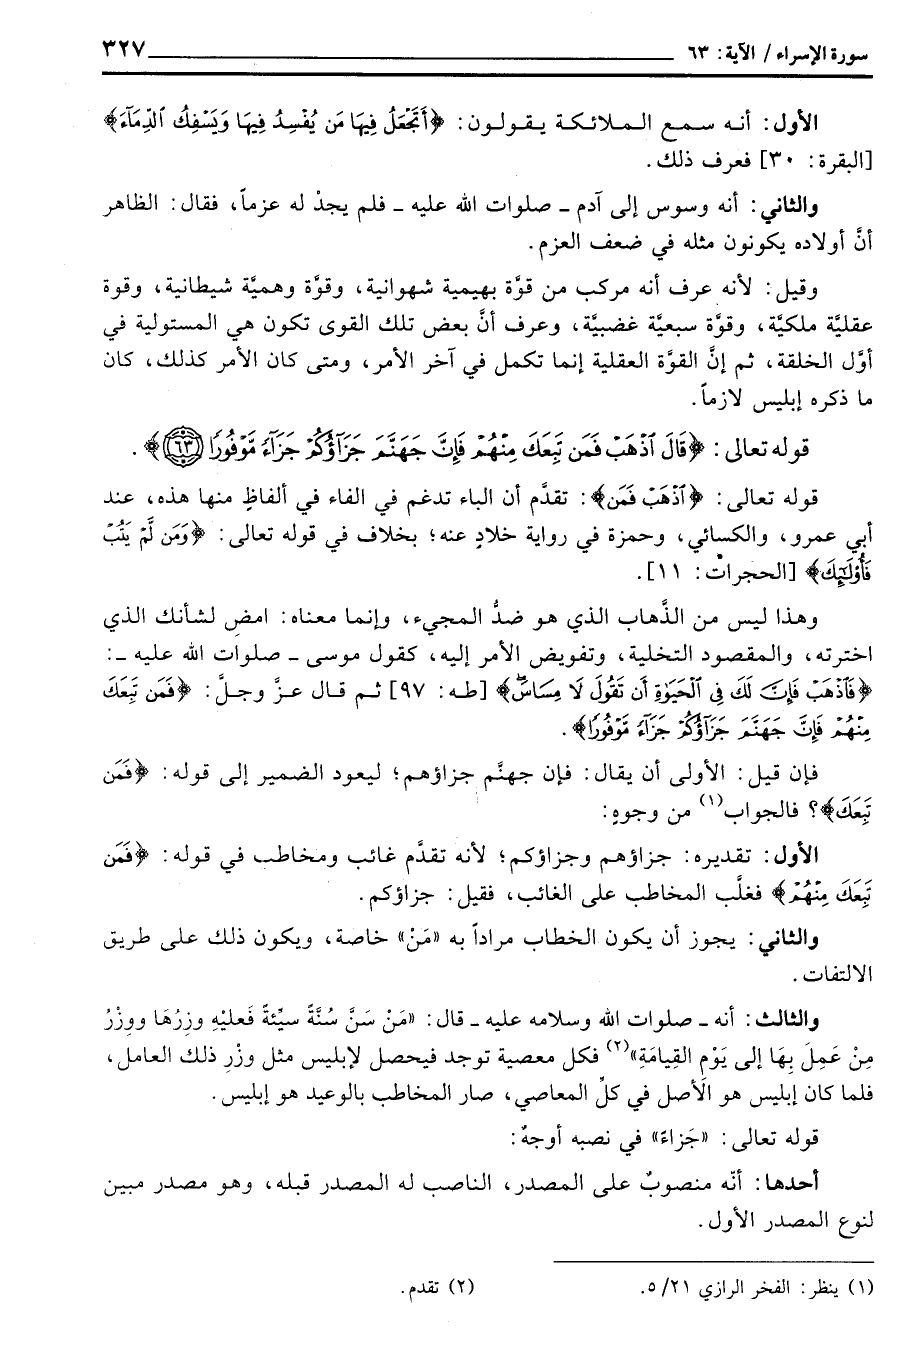 سورة الإسراء / الآية: ٦٣ ٣٢٧
الأول: أنه سمع الملائكة يقولون: ﴿أَتَجْعَلُ فِيهَا مَن يُفْسِدُ فِيهَا وَيَسْفِكُ الدِّمَآءَ﴾
[البقرة: ٣٠] فعرف ذلك.
والثاني: أنه وسوس إلى آدم ـ صلوات الله عليه ـ فلم يجدْ له عزماً، فقال: الظاهر
أنَّ أولاده يكونون مثله في ضعف العزم.
وقيل: لأنه عرف أنه مركب من قوَّة بهيمية شهوانية، وقوَّة وهميَّة شيطانية، وقوة
عقليَّة ملكيَّة، وقوَّة سبعيَّة غضبيَّة، وعرف أنَّ بعض تلك القوى تكون هي المستولية في
أوَّل الخلقة، ثم إنَّ القوَّة العقلية إنما تكمل في آخر الأمر، ومتى كان الأمر كذلك، كان
ما ذكره إبليس لازماً.
قوله تعالى: ﴿قَالَ ٱذْهَبْ فَمَن تَبِعَكَ مِنْهُمْ فَإِنَّ جَهَنَّمَ جَزَآؤُكُمْ جَزَآءً مَّوْفُورًا ٦٣﴾.
قوله تعالى: ﴿ٱذْهَبْ فَمَن﴾: تقدَّم أن الباء تدغم في الفاء في ألفاظٍ منها هذه، عند
أبي عمرو، والكسائي، وحمزة في رواية خلادٍ عنه؛ بخلاف في قوله تعالى: ﴿وَمَن لَّمْ يَتُبْ
فَأُوْلَٰٓئِكَ﴾ [الحجرات: ١١].
وهذا ليس من الذَّهاب الذي هو ضدُّ المجيء، وإنما معناه: امضِ لشأنك الذي
اخترته، والمقصود التخلية، وتفويض الأمر إليه، كقول موسى ـ صلوات الله عليه ـ:
﴿فَٱذْهَبْ فَإِنَّ لَكَ فِي ٱلْحَيَوٰةِ أَن تَقُولَ لَا مِسَاسَ﴾ [طه: ٩٧] ثم قال عزَّ وجلَّ: ﴿فَمَن تَبِعَكَ
مِنْهُمْ فَإِنَّ جَهَنَّمَ جَزَآؤُكُمْ جَزَآءً مَّوْفُورًا﴾.
فإن قيل: الأولى أن يقال: فإن جهنَّم جزاؤهم؛ ليعود الضمير إلى قوله: ﴿فَمَن
تَبِعَكَ﴾؟ فالجواب(١) من وجوهٍ:
الأول: تقديره: جزاؤهم وجزاؤكم؛ لأنه تقدَّم غائب ومخاطب في قوله: ﴿فَمَن
تَبِعَكَ مِنْهُمْ﴾ فغلَّب المخاطب على الغائب، فقيل: جزاؤكم.
والثاني: يجوز أن يكون الخطاب مراداً به «مَنْ» خاصة، ويكون ذلك على طريق
الالتفات.
والثالث: أنه ـ صلوات الله وسلامه عليه ـ قال: «مَنْ سَنَّ سُنَّةً سيِّئةً فَعليْهِ وزِرُهَا ووِزْرُ
مِنْ عَمِلَ بِهَا إلى يَوْمِ القِيامَةِ»(٢) فكل معصية توجد فيحصل لإبليس مثل وزْر ذلك العامل،
فلما كان إبليس هو الأصل في كلِّ المعاصي، صار المخاطب بالوعيد هو إبليس.
قوله تعالى: «جَزاءً» في نصبه أوجهٌ:
أحدها: أنّه منصوبٌ على المصدر، الناصب له المصدر قبله، وهو مصدر مبين
لنوع المصدر الأول.
(١) ينظر: الفخر الرازي ٥/٢١. (٢) تقدم.